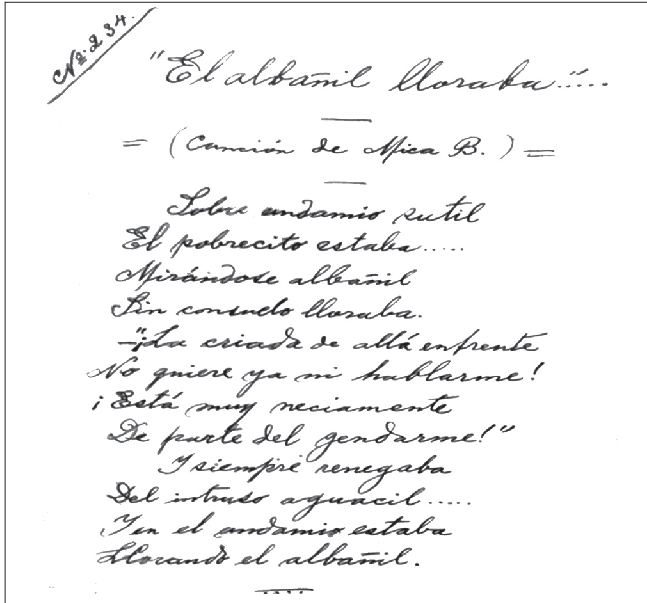 Nº 234.
"El albañil lloraba".....
= (Canción de Mica B.) =
Sobre andamio sutil
El pobrecito estaba.....
Mirándose albañil
Sin consuelo lloraba.
—"¡La criada de allá enfrente
No quiere ya ni hablarme!
¡Está muy neciamente
De parte del gendarme!"
I siempre renegaba
Del intruso aguacil.....
I en el andamio estaba
Llorando el albañil.